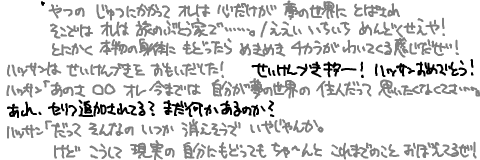 やつの じゅつにかかって オレは 心だけが 夢の世界に とばされ
そこでは オレは 旅のぶとう家で……。/ええい いちいち めんどくせえや!
とにかく 本物の身体に もどったら めきめき チカラがわいてくる感じだぜ!!
ハッサンは せいけんづきを おもいだした! せいけんづきキター! ハッサンおめでとう!
ハッサン「あのさ 〇〇 オレ 今までは 自分が夢の世界の 住人だって 思いたくなくてさ……。
あれ、セリフ追加されてる? まだ何かあるのか?
ハッサン「だって そんなの いつか 消えそうで いやじゃんか。
けど こうして 現実の 自分にもどっても ちゃ〜んと これまでのこと おぼえてるぜ!